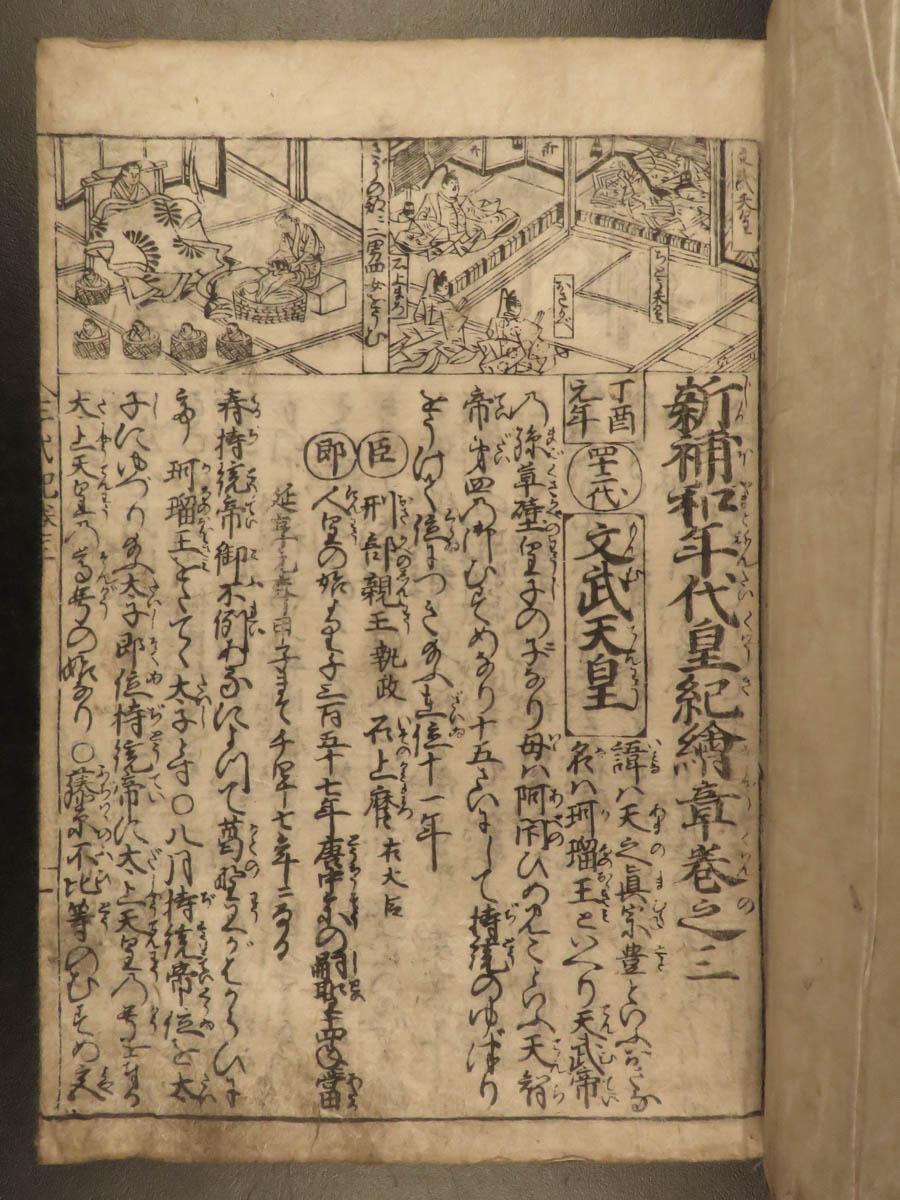 文武天皇
ぢとう天わう
おさかべ
石上まろ
新補和年代皇紀繪章巻之三
丁酉元年
四十二代
文武天皇
諱ハ天之眞宗豊といふおさな
名ハ珂瑠王といへり天武帝
乃孫草壁皇子の子なり母ハ阿閇ひめみこといふ天智
帝第四乃御むすめなり十五さいにして持統のゆづり
をうけて位につき給ふ在位十一年
臣 刑部親王執政 石上麿 右大臣
即 人皇の始より千三百五十七年唐中宗の嗣聖十四年ニ當
延享元年甲子まて千四十七年ニなる
春持統帝御不例
珂瑠王をたてて太子とす〇八月持統帝位を太
子にゆづり給ふ太子即位持統帝に太上天皇乃号を
太上天皇乃尊号の始なり〇藤原不比等のむすめ